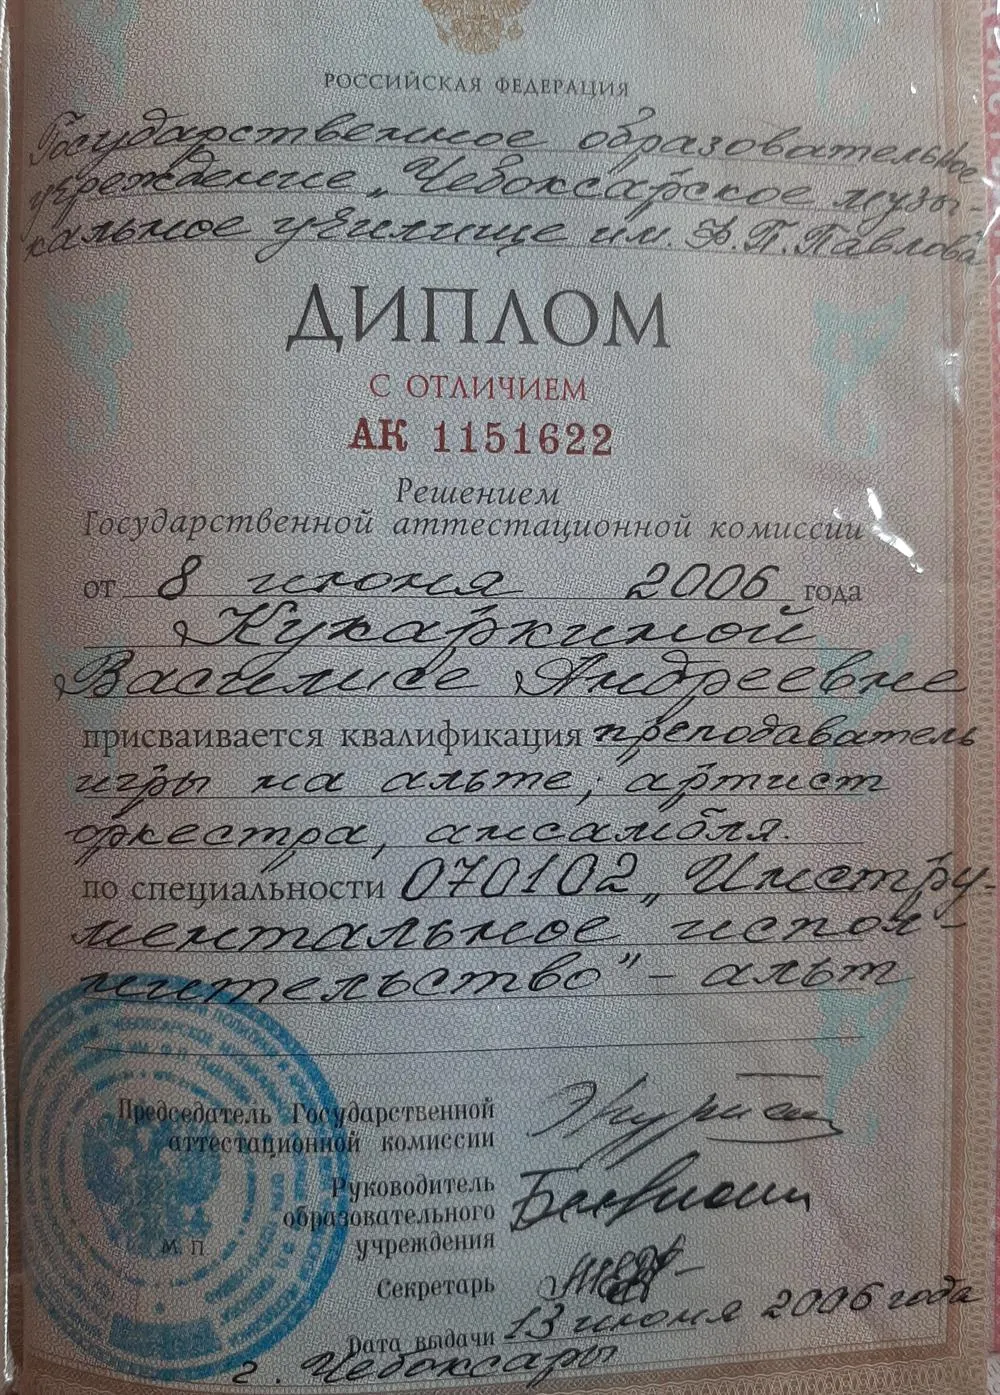 РОССИЙСКАЯ ФЕДЕРАЦИЯ
Государственное образовательное
учреждение „Чебоксарское музы-
кальное училище им. Ф.П.Павлова
ДИПЛОМ
С ОТЛИЧИЕМ
АК 1151622
Решением
Государственной аттестационной комиссии
от 8 июня 2006 года
Кукаркиной
Василисе Андреевне
присваивается квалификация преподаватель
игры на альте, артист
оркестра, ансамбля.
по специальности 070102 „Инстру-
ментальное испол-
нительство" – альт
Председатель Государственной
аттестационной комиссии
Руководитель
образовательного
учреждения
М. П.
Секретарь
Дата выдачи 13 июня 2006 года
г. Чебоксары